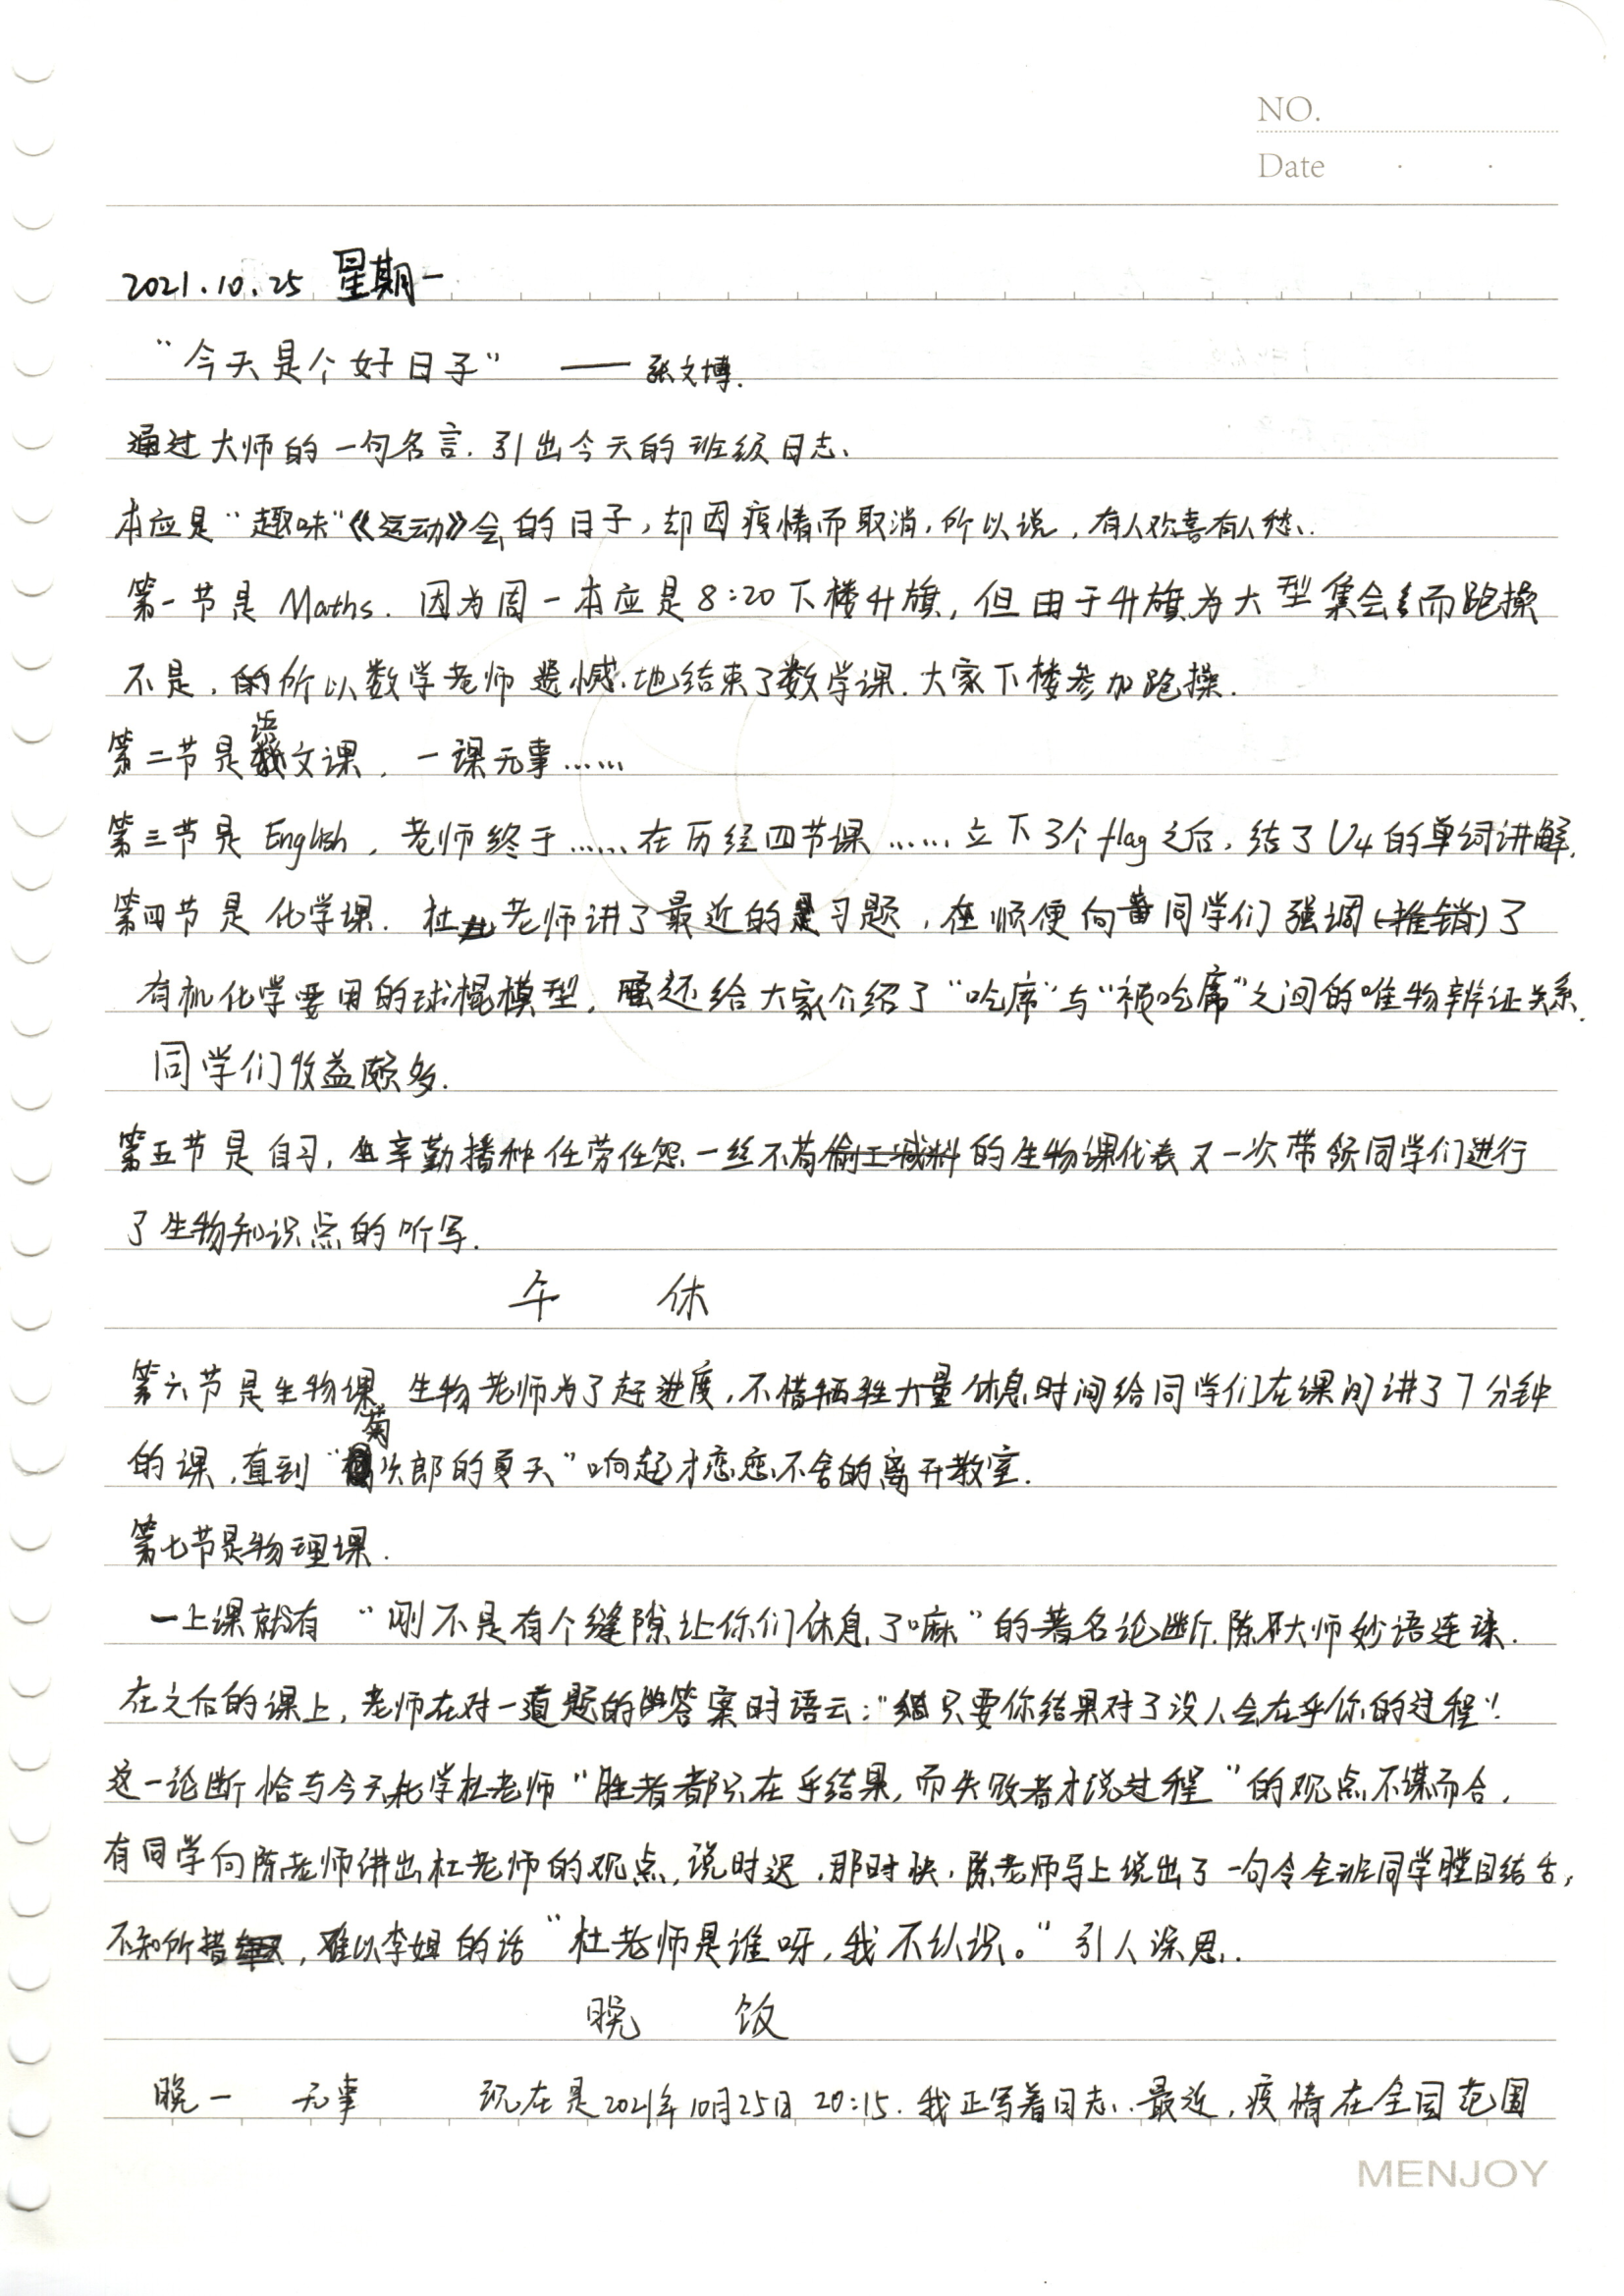 NO.
Date
2021.10.25 星期一
“今天是个好日子” —— 张文博.
通过大师的一句名言.引出今天的班级日志.
本应是“趣味”《运动》会的日子,却因疫情而取消,所以说,有人欢喜有人愁.
第一节是 Maths. 因为周一本应是8:20下楼升旗,但由于升旗为大型集会而跑操
不是,所以数学老师遗憾地结束了数学课.大家下楼参加跑操.
第二节是语文课,一课无事……
第三节是 English, 老师终于……在历经四节课……立下3个flag之后,结了U4的单词讲解.
第四节是化学课. 杜老师讲了最近的习题,在顺便向同学们强调(推销)了
有机化学要用的球棍模型,还给大家介绍了“吃席”与“被吃席”之间的唯物辨证关系.
同学们收益颇多.
第五节是自习,辛勤播种任劳任怨一丝不苟偷工减料的生物课代表又一次带领同学们进行
了生物知识点的听写.
午 休
第六节是生物课 生物老师为了赶进度,不惜牺牲大量休息时间给同学们在课间讲了7分钟
的课,直到“菊次郎的夏天”响起才恋恋不舍的离开教室.
第七节是物理课.
一上课就有“刚不是有个缝隙让你们休息了嘛”的著名论断.陈大师妙语连珠.
在之后的课上,老师在对一道题的答案时语云:“只要你结果对了没人会在乎你的过程”!
这一论断恰与今天化学杜老师“胜者都只在乎结果,而失败者才说过程”的观点不谋而合,
有同学向陈老师讲出杜老师的观点,说时迟,那时快,陈老师马上说出了一句令全班同学瞠目结舌,
不知所措,难以李姐的话“杜老师是谁呀,我不认识。”引人深思.
晚 饭
晚一 无事 现在是2021年10月25日 20:15.我正写着日志.最近,疫情在全国范围
MENJOY